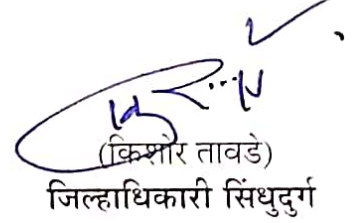 (किशोर तावडे)
जिल्हाधिकारी सिंधुदुर्ग